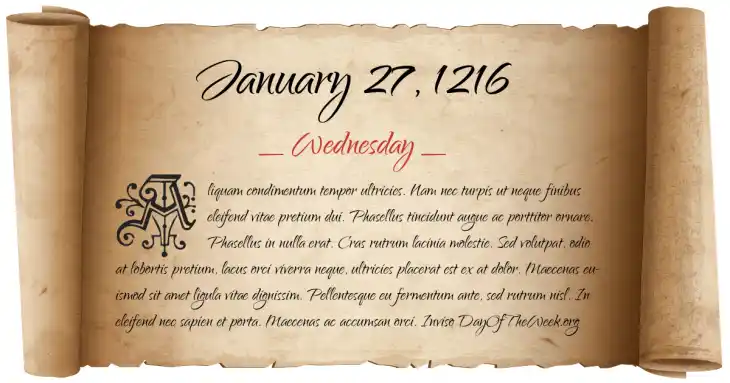 January 27, 1216
— Wednesday —
Aliquam condimentum tempor ultricies. Nam nec turpis ut neque finibus
eleifend vitae pretium dui. Phasellus tincidunt augue ac porttitor ornare.
Phasellus in nulla erat. Cras rutrum lacinia molestie. Sed volutpat, odio
at lobortis pretium, lacus orci viverra neque, ultricies placerat est ex at dolor. Maecenas eu-
ismod sit amet ligula vitae dignissim. Pellentesque eu fermentum ante, sed rutrum nisl. In
eleifend nec sapien et porta. Maecenas ac accumsan orci. Inviso DayOfTheWeek.org